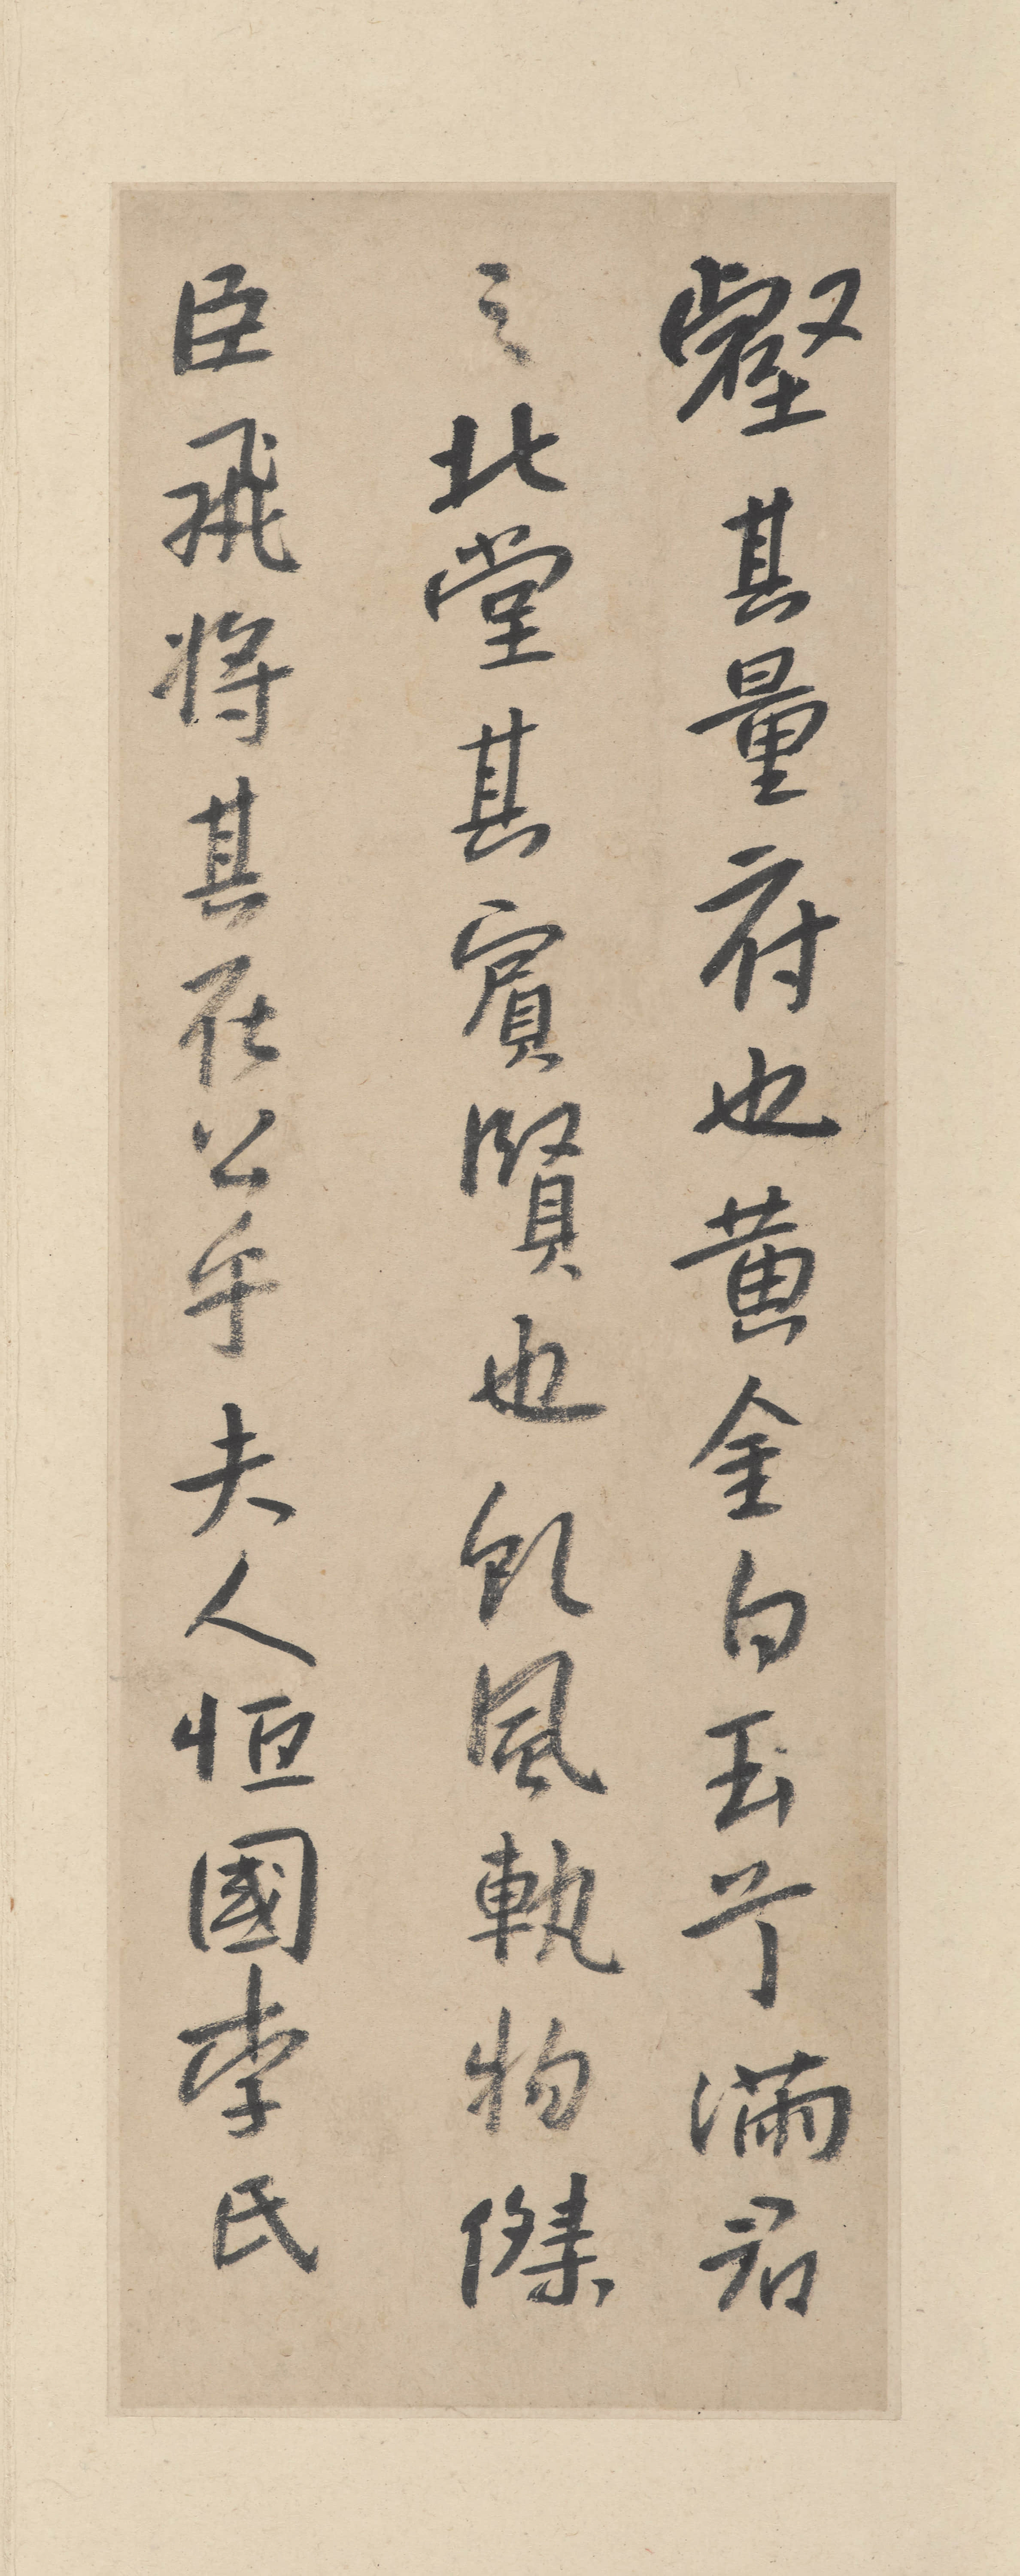 壑其量府也黄金白玉兮滿君
之北堂其賓賢也風軌物傑
臣飛將其在公乎夫人恒國李氏